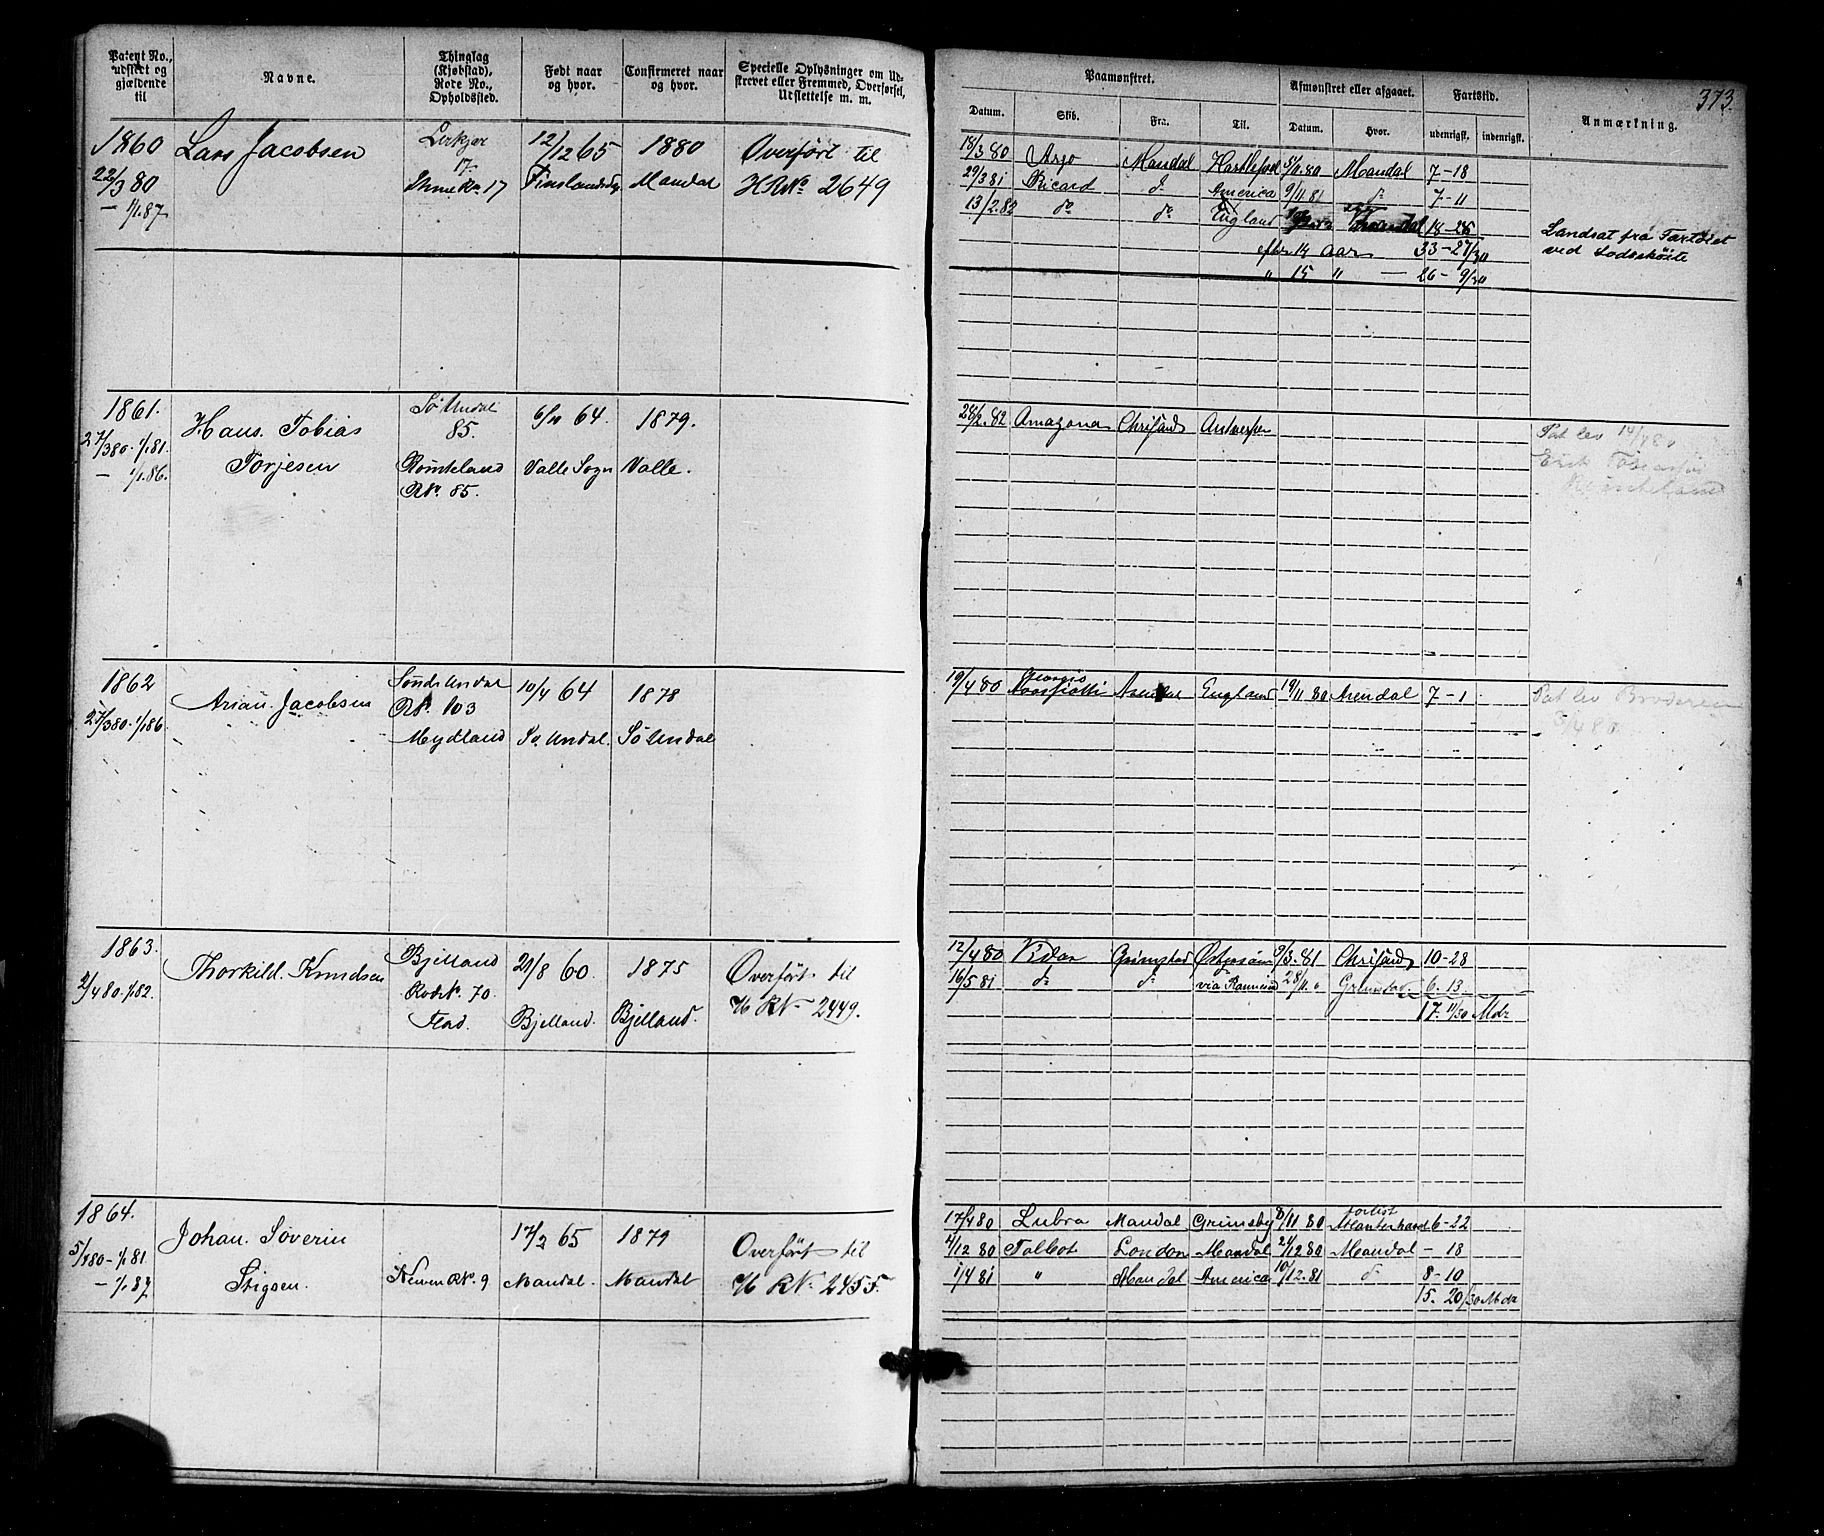 Patent No., udstedt og gjældende til
Navne.
Thinglag (Kjøbstad), Rode No., Opholdssted.
Født naar og hvor.
Confirmeret naar og hvor.
Specielle Oplysninger om Udskrevet eller Fremmed, Overførsel, Udslettelse m. m.
Paamønstret.
Afmønstret eller afgaaet.
Fartstid.
373.
Datum.
Skib.
Fra.
Til.
Datum.
Hvor.
udenrigsk.
indenrigsk.
Anmærkning.
1860
22/3 80
— 1/1.87.
Lars Jacobsen
17.
12/12 65
1880
Mandal
Overført til
H.R.No. 2649
18/3 80 Argo Mandal 5/11.80 Mandal 7-18
29/3 81 Ricard do America 9/11.81 do 7-11
13/2.82 do do England 18-28
efter 14 Aar 33-27/30
" 15 " — 26-9/30
Landsat fra Fartøiet
ved Lodsskøite
1861.
27/3 80. 1/1.81.
— 1/1.86.
Hans. Tobias
Torjesen
Sø Undal
85.
RNo. 85.
64.
Valle Sogn
1879.
Valle.
28/2.82 Amazona Chrisands Antwerpen
Pat lev 14/4 80
1862
27/3 80. 1/1 86.
Arian. Jacobsen
Søndr Undal
RNo. 103
Mydland
10/4 64
Sø. Undal.
1878
Sø Undal
19/4 80 Arendal England 19/11.80 Arendal 7-1
Pat lev Broderen
1863.
2/4 80. 1/1.82.
Thorkild. Knudsen
Bjelland
RodeNo. 70.
Flad.
21/8 60.
Bjelland.
1875
Bjelland.
Overført til
H RNo 2449.
12/4 80 Vidar Grimstad 9/3.81 Chrisands 10-28
16/5 81 do do via 28/11. " Grimstad 6.13
17. 11/30 Mdr
1864.
5/4 80 - 1/1 81
— 1/1.87
Johan. Søverin
Stigsen.
RNo. 9
17/2 65
Mandal.
1879
Mandal
Overført til
H RNo. 2455.
17/4 80 Lubra Mandal Grimsby 8/11 80 forlist 6-22
4/12 80 Talbot London Mandal 24/12 80 Mandal - 18
1/4 81 " Mandal America 10/12.81 do 8-10
15. 20/30 Mdr